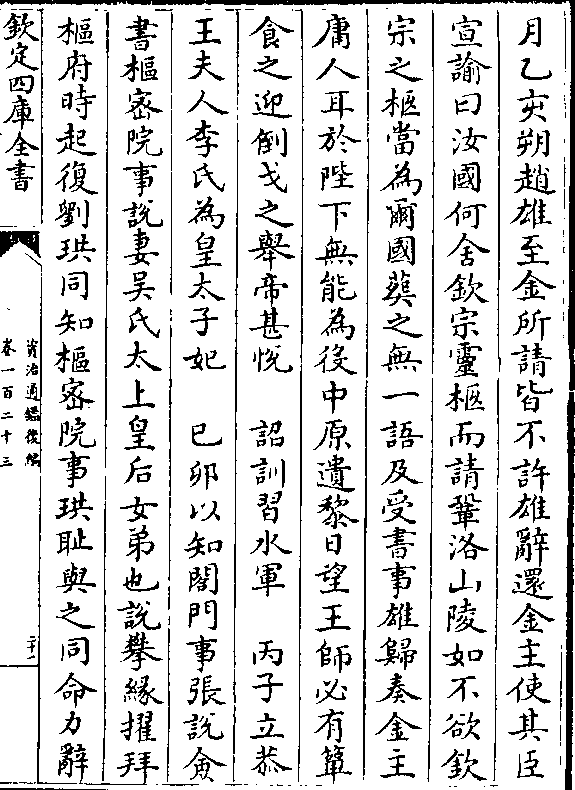 月乙亥朔趙雄至金所請皆不許雄辭還金主使其臣
宣諭曰汝國何舍欽宗靈柩而請鞏洛山陵如不欲欽
宗之柩當為爾國葬之無一語及受書事雄歸奏金主
庸人耳於陛下無能為後中原遺黎日望王師必有簞
食之迎倒戈之舉帝甚悅　詔訓習水軍　丙子立恭
王夫人李氏為皇太子妃　已卯以知閤門事張說僉
書樞宻院事說妻吳氏太上皇后女弟也說攀緣擢拜
樞府時起復劉珙同知樞宻院事珙耻與之同命力辭
欽定四庫全書
資治通鑑後編
卷一百二十三
二十一